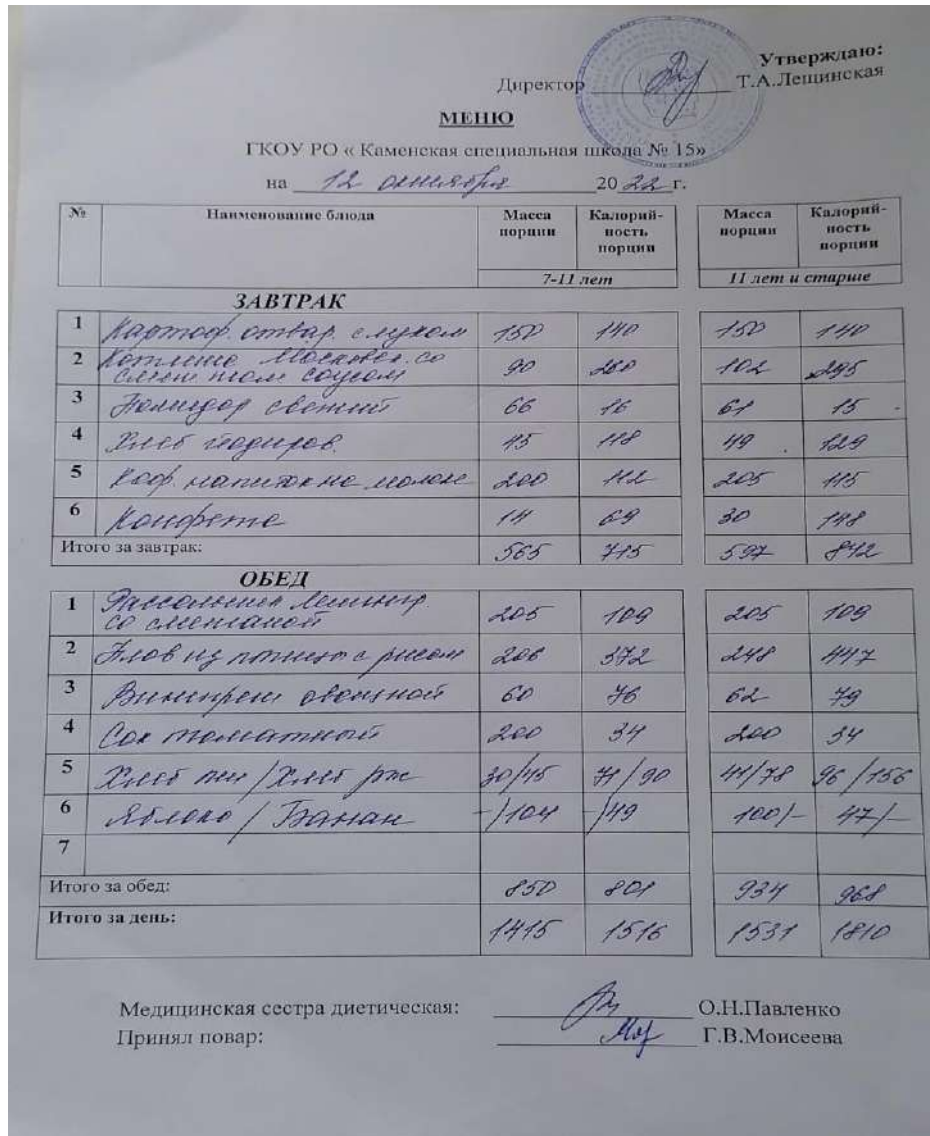 Утверждаю:
Директор Т.А.Лещинская
МЕНЮ
ГКОУ РО « Каменская специальная школа № 15»
на 12 октября 2022 г.
№ Наименование блюда Масса порции Калорий-ность порции Масса порции Калорий-ность порции
7-11 лет 11 лет и старше
ЗАВТРАК
1 Картоф. отвар. с луком 150 140 150 140
2 Котлета Московск. со
сметаном соусом 90 260 102 295
3 Помидор свежий 66 16 61 15
4 Хлеб йодиров. 45 118 49 129
5 Коф. напиток на молоке 200 112 205 115
6 Конфета 14 69 30 148
Итого за завтрак: 565 715 597 842
ОБЕД
1 Рассольник Ленингр.
со сметаной 205 109 205 109
2 Плов из птицы с рисом 206 372 248 447
3 Винегрет овощной 60 76 62 79
4 Сок томатный 200 34 200 34
5 Хлеб пш / Хлеб рж 30/45 71/90 41/78 96/156
6 Яблоко / Банан -/104 -/49 100/- 47/-
7
Итого за обед: 850 801 934 968
Итого за день: 1415 1516 1531 1810
Медицинская сестра диетическая: О.Н.Павленко
Принял повар: Г.В.Моисеева